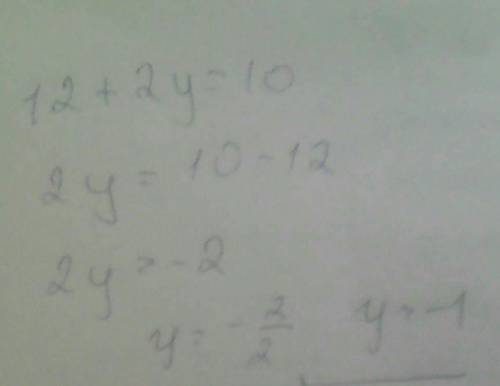 12 + 2y = 10
2y = 10 - 12
2y = -2
y = -2/2 y = -1